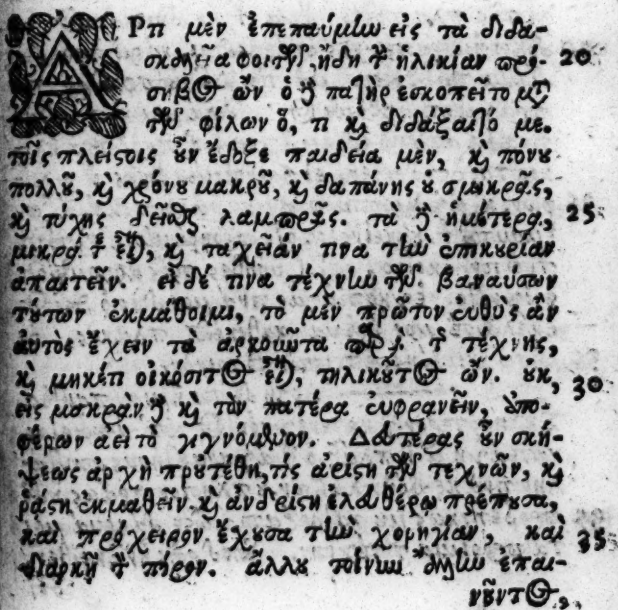 ΑΡτι μὲν ἐπεπαύμην εἰς τὰ διδα-
σκαλεῖα φοιτῶν, ἤδη τὴν ἡλικίαν πρό- 20
σηβος ὤν· ὁ δὲ πατὴρ ἐσκοπεῖτο μετὰ
τῶν φίλων ὅ, τι καὶ διδάξαιτό με.
τοῖς πλείστοις οὖν ἔδοξε παιδεία μὲν, καὶ πόνου
πολλοῦ, καὶ χρόνου μακροῦ, καὶ δαπάνης οὐ σμικρᾶς,
καὶ τύχης δεῖσθαι λαμπρᾶς. τὰ δὲ ἡμέτερα, 25
μικρά τε εἶναι, καὶ ταχεῖάν τινα τὴν ἐπικουρίαν
ἀπαιτεῖν. εἰ δέ τινα τέχνην τῶν βαναύσων
τούτων ἐκμάθοιμι, τὸ μὲν πρῶτον εὐθὺς ἂν
αὐτὸς ἔχειν τὰ ἀρκοῦντα παρὰ τῆς τέχνης,
καὶ μηκέτι οἰκόσιτος εἶναι, τηλικοῦτος ὤν. οὐκ, 30
εἰς μακρὰν δὲ καὶ τὸν πατέρα εὐφρανεῖν, ἀπο-
φέρων αεὶ τὸ γιγνόμενον. Δευτέρας οὖν σκέ-
ψεως ἀρχὴ προὐτέθη, τίς ἀρίστη τῶν τεχνῶν, καὶ
ῥᾴστη ἐκμαθεῖν καὶ ἀνδρὶ ἐλευθέρῳ πρέπουσα,
καὶ πρόχειρον ἔχουσα τὴν χορηγίαν, καὶ 35
διαρκῆ τὸν πόρον. ἄλλου τοίνυν ἄλλην ἐπαι-
νοῦντος,